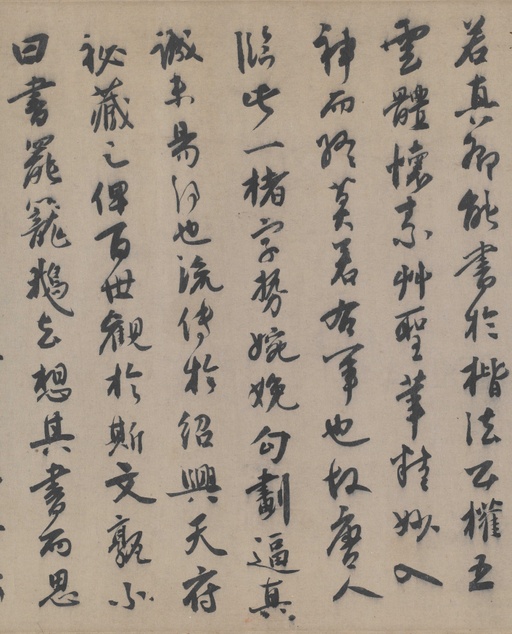 若真卿能書於楷法公權五
雲體懷素艸聖筆精妙入
神而終莫若右軍也故唐人
臨此一楮字勢婉娩勾劃逼真
誠未易得也流傳於紹興天府
秘藏之俾百世觀於斯文孰不
曰書罷籠鵝去想其書而思